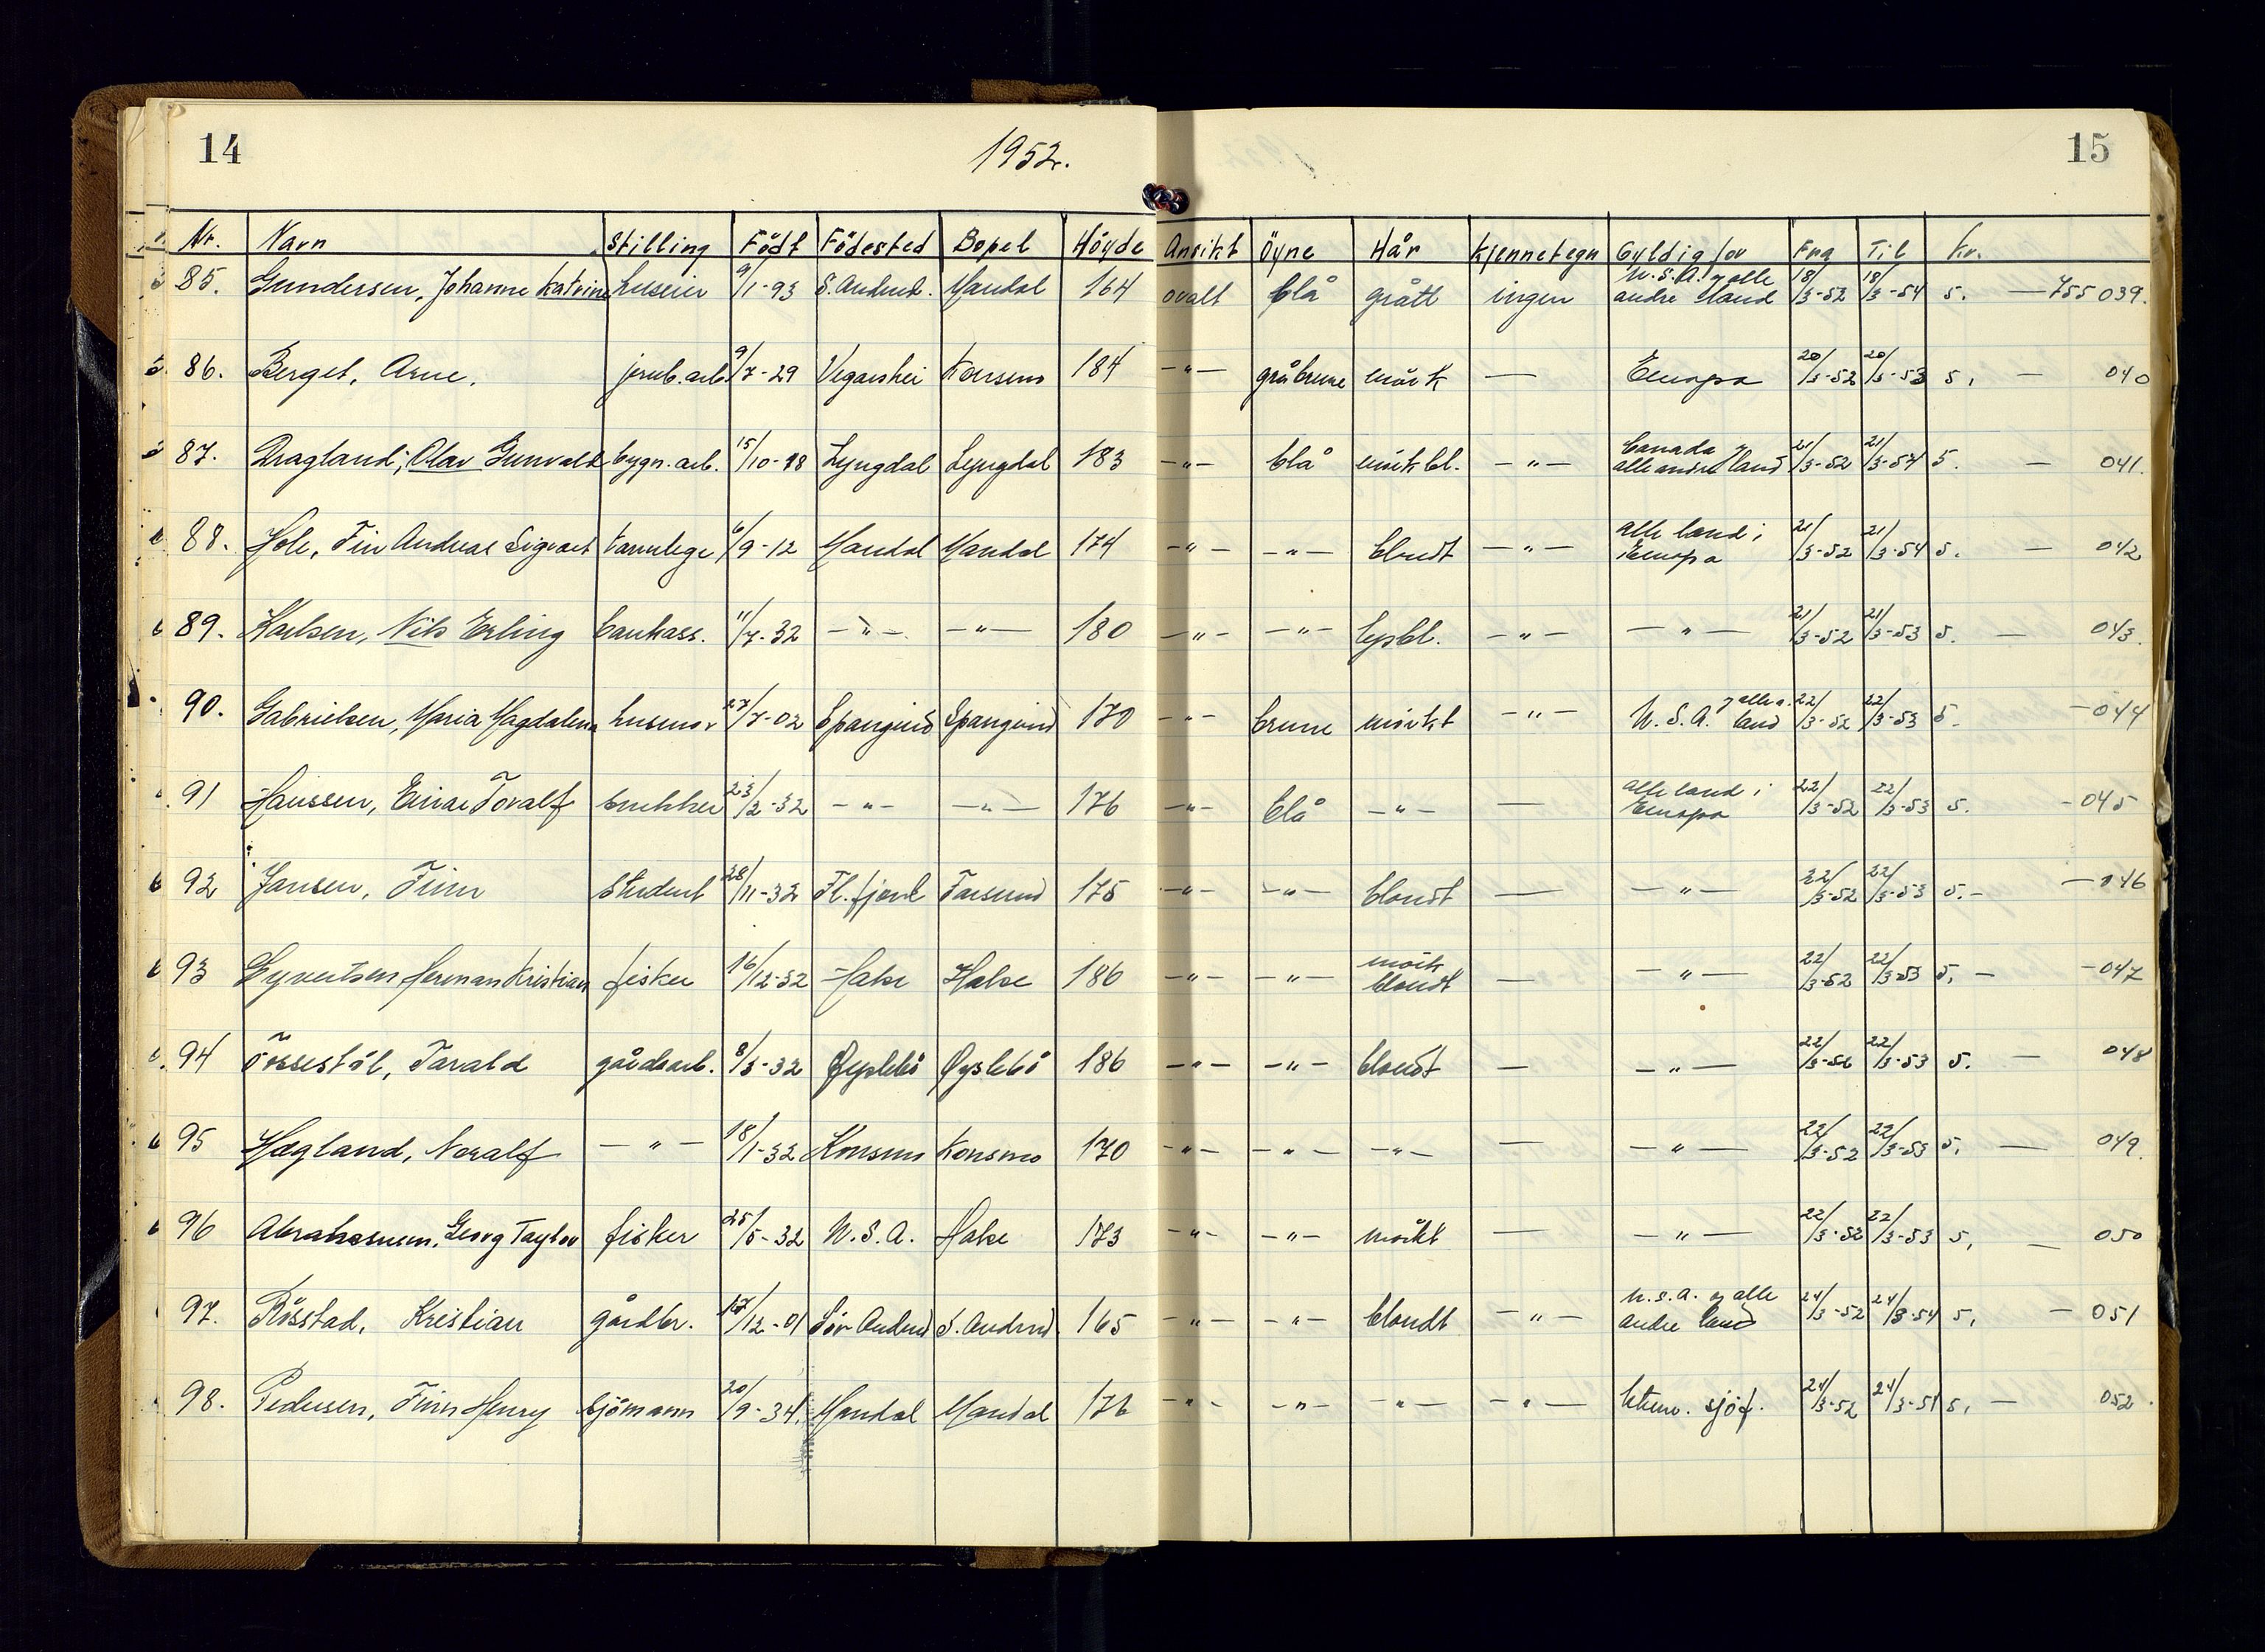 14
1952.
15
Nr. Navn Stilling Födt Födested Bopel Höyde Ansikt Öyne Hår Kjennetegn Gyldig for Fra Til Kr.
85. Gundersen, Johanne Katrine huseier 9/1-93 S. Audned. Mandal 164 ovalt blå grått ingen U.S.A. og alle andre land 18/3-52 18/3-54 5. — 755 039.
86. Berget, Arne. jernb.arb. 9/7-29 Vegårshei Konsmo 184 —"— gråbrune mörk — Europa 20/3-52 20/3-53 5. — 040
87. Dragland, Olav Gunvald bygn.arb. 15/10-18 Lyngdal Lyngdal 183 —"— blå mörkbl. —"— Canada og alle andre land 21/3-52 21/3-54 5. — 041.
88. Hole, Finn Andreas Sigvart tannlege 6/9-12 Mandal Mandal 174 —"— —"— blondt —"— alle land i Europa 21/3-52 21/3-54 5. — 042
89. Karlsen, Nils Erling bankass. 11/7-32 —"— —"— 180 —"— —"— lysbl. —"— —"— 21/3-52 21/3-53 5. — 043.
90. Gabrielsen, Maria Magdalena husmor 27/7-02 Spangerid Spangerid 170 —"— brune mörkt —"— U.S.A. og alle a. land 22/3-52 22/3-53 5. — 044
91 Hanssen, Einar Toralf snekker 23/2-32 —"— —"— 176 —"— blå —"— — alle land i Europa 22/3-52 22/3-53 5. — 045
92 Jansen, Finn student 28/11-32 Fl.fjord Farsund 175 —"— —"— blondt — —"— 22/3-52 22/3-53 5.- — 046
93 Syvertsen Herman Kristian fisker 16/12-32 Halse Halse 186 —"— —"— mörk blondt — —"— 22/3-52 22/3-53 5. — — 047
94 Össestöl, Tarald gårdsarb. 8/3-32 Øyslebö Øyslebö 186 —"— —"— blondt — —"— 22/3-52 22/3-53 5. — 048
95 Hægland, Noralf —"— 18/1-32 Konsmo Konsmo 170 —"— —"— —"— — —"— 22/3-52 22/3-53 5. — 049.
96 Abrahamsen. Georg Taylor fisker 25/5-32 U.S.A. Halse 173 —"— —"— mörkt — —"— 22/3-52 22/3-53 5. — 050
97. Rösstad, Kristian gårdbr. 17/12-01 Sör Audned S. Audned 165 —"— —"— blondt —"— U.S.A. og alle andre land 24/3-52 24/3-54 5. — 051
98. Pedersen, Finn Henry sjömann 20/9-34. Mandal Mandal 176 —"— —"— —"— —"— utenr. sjöf. 24/3-52 24/3-54 5. — 052.